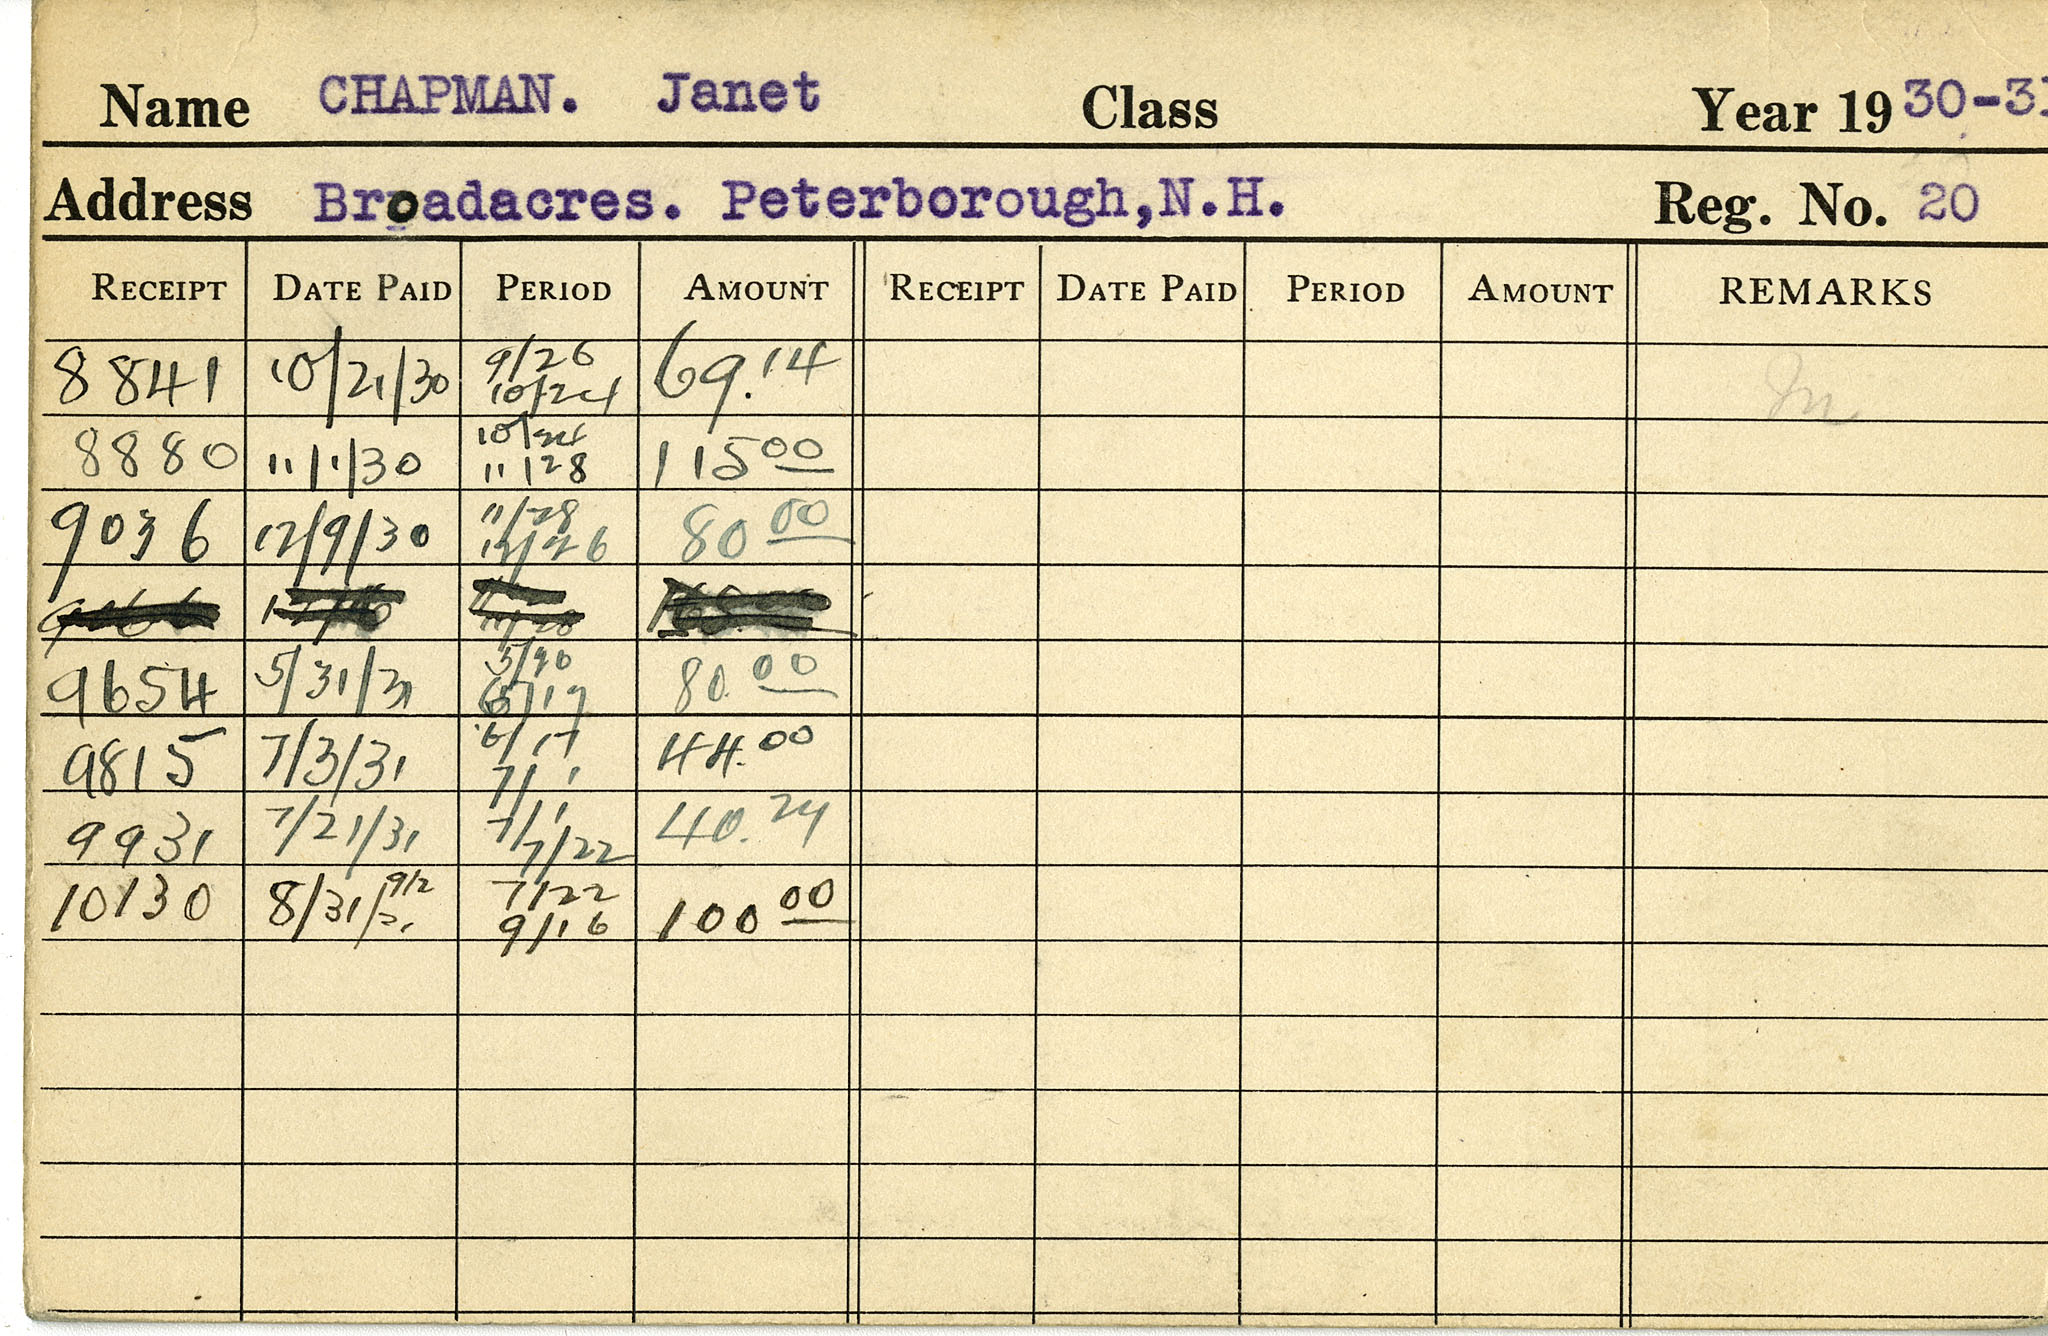 Name CHAPMAN. Janet Class Year 19 30-31
Address Broadacres. Peterborough, N.H. Reg. No. 20
RECEIPT DATE PAID PERIOD AMOUNT RECEIPT DATE PAID PERIOD AMOUNT REMARKS
8841 10/21/30 9/26 10/24 69.14
8880 11/1/30 10/24 11/28 115 00
9036 12/9/30 11/28 12/26 80 00
9654 5/31/31 80. 00
9815 7/3/31 6/17 7/1 44.00
9931 7/21/31 7/1 7/22 40.24
10130 8/31/31 9/2 7/22 9/16 100 00